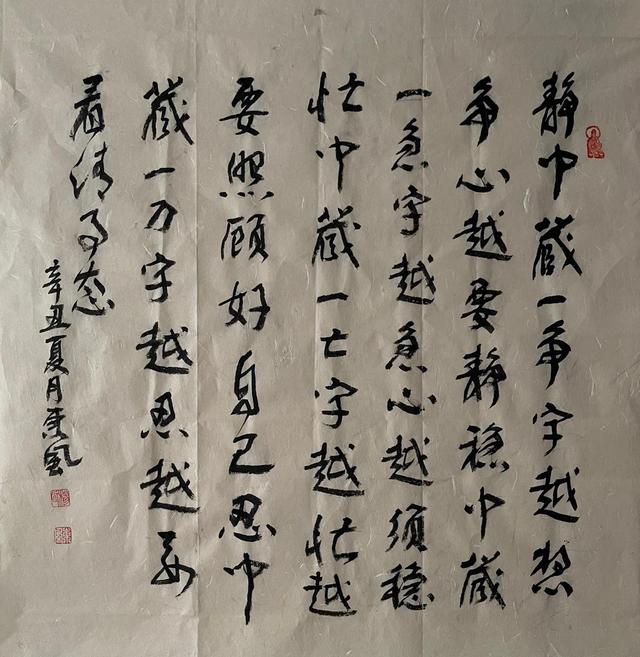 静中藏一争字越想
争心越要静稳中藏
一急字越急心越须稳
忙中藏一亡字越忙越
要照顾好自己忍中
藏一刀字越忍越要
看清事态
辛丑夏月